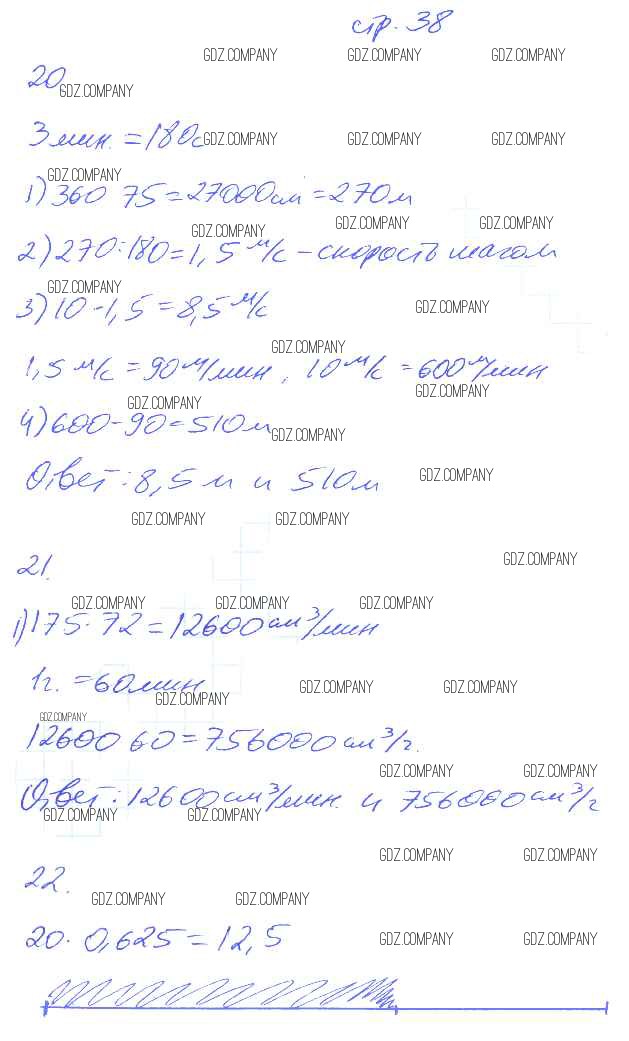 стр. 38
GDZ.COMPANY GDZ.COMPANY GDZ.COMPANY
20
GDZ.COMPANY
3 мин. = 180с
GDZ.COMPANY GDZ.COMPANY GDZ.COMPANY
GDZ.COMPANY
1) 360 75 = 27000см = 270м
GDZ.COMPANY GDZ.COMPANY GDZ.COMPANY
2) 270 : 180 = 1,5 м/с – скорость шагом
GDZ.COMPANY
3) 10 - 1,5 = 8,5 м/с
GDZ.COMPANY
GDZ.COMPANY
1,5 м/с = 90 м/мин, 10 м/с = 600 м/мин
GDZ.COMPANY
GDZ.COMPANY
4) 600 - 90 = 510м
GDZ.COMPANY
Ответ: 8,5 м и 510м
GDZ.COMPANY
GDZ.COMPANY GDZ.COMPANY
21.
GDZ.COMPANY
GDZ.COMPANY GDZ.COMPANY GDZ.COMPANY
1) 175 · 72 = 12600 см³/мин
1г. = 60мин
GDZ.COMPANY GDZ.COMPANY
GDZ.COMPANY
GDZ.COMPANY
12600 60 = 756000 см³/г.
GDZ.COMPANY GDZ.COMPANY
Ответ: 12600 см³/мин. и 756000 см³/г
GDZ.COMPANY GDZ.COMPANY
GDZ.COMPANY GDZ.COMPANY
22.
GDZ.COMPANY GDZ.COMPANY
20 · 0,625 = 12,5
GDZ.COMPANY GDZ.COMPANY